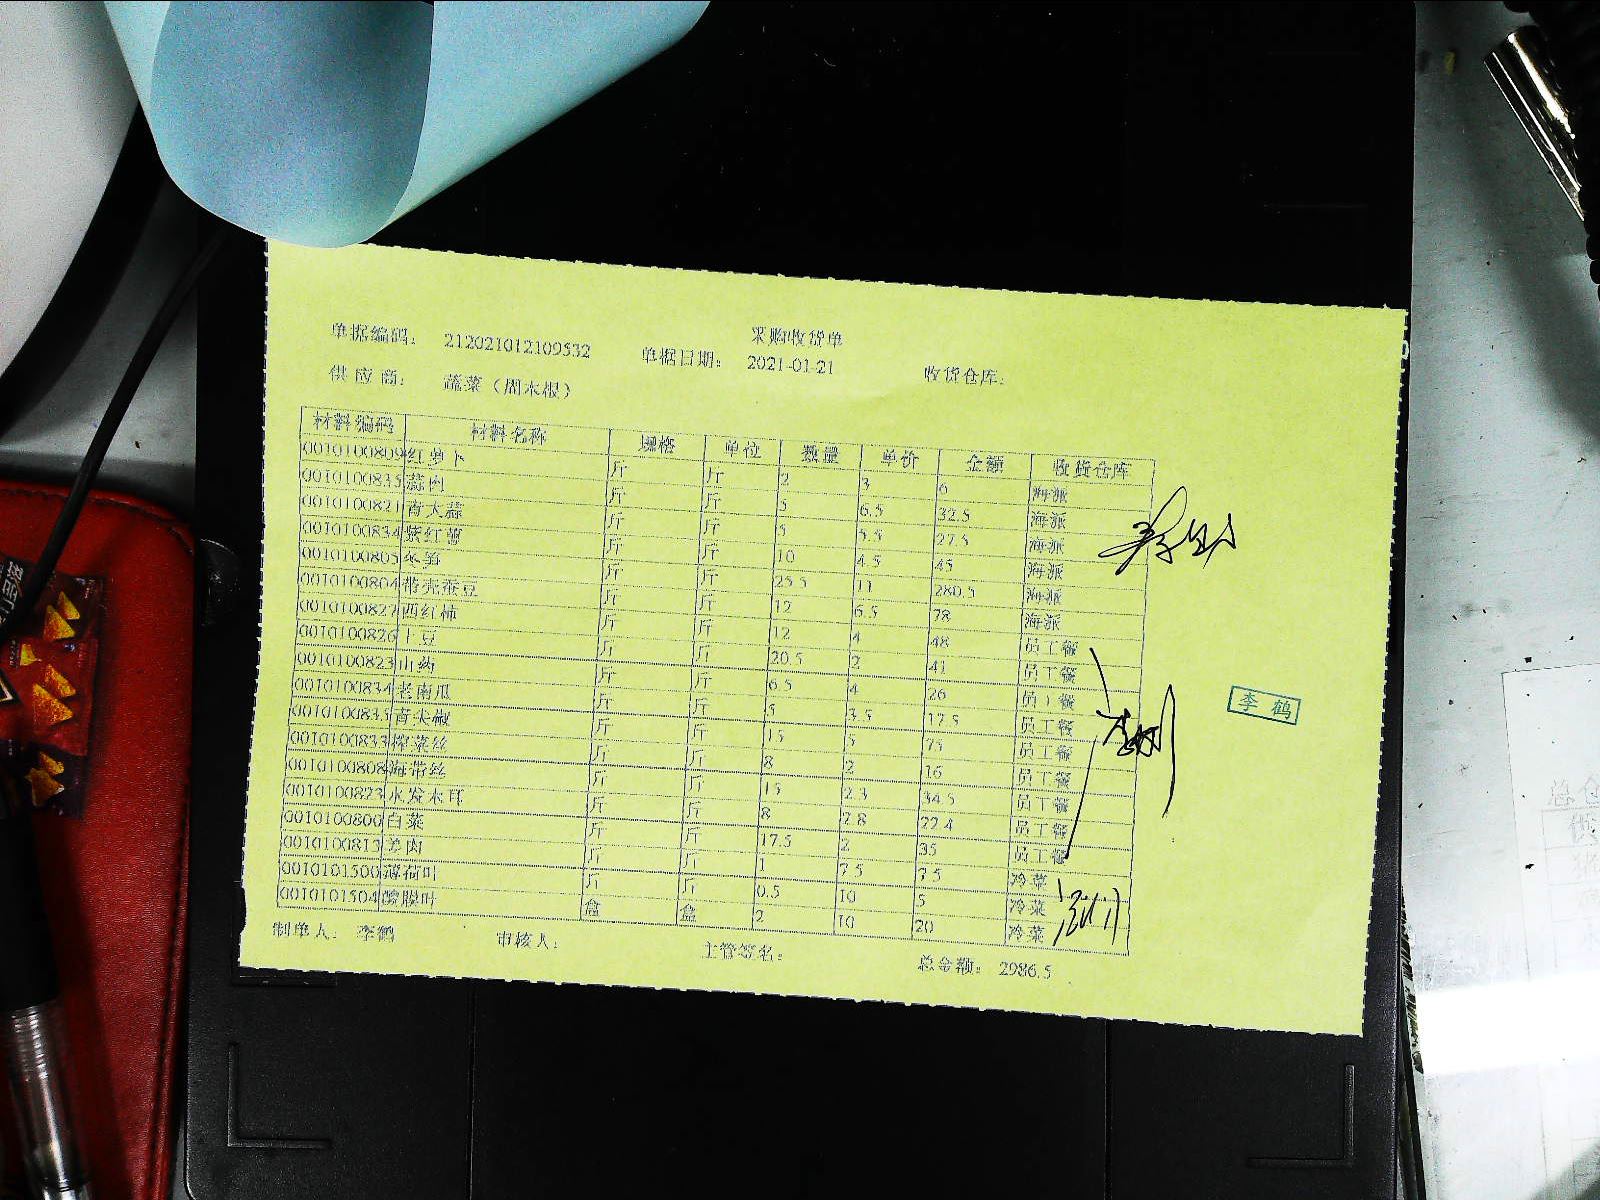 采购收货单
单据编码： 212021012109532 单据日期： 2021-01-21 收货仓库：
供应商： 蔬菜（周木根）
材料编码 材料名称 规格 单位 数量 单价 金额 收货仓库
0010100809 红萝卜 斤 斤 2 3 6 海派
0010100835 蒜肉 斤 斤 5 6.5 32.5 海派
0010100821 青大蒜 斤 斤 5 5.5 27.5 海派
0010100834 紫红薯 斤 斤 10 4.5 45 海派
0010100805 冬笋 斤 斤 25.5 11 280.5 海派
0010100804 带壳蚕豆 斤 斤 12 6.5 78 海派
0010100827 西红柿 斤 斤 12 4 48 员工餐
0010100826 土豆 斤 斤 20.5 2 41 员工餐
0010100823 山药 斤 斤 6.5 4 26 员工餐
0010100834 老南瓜 斤 斤 5 3.5 17.5 员工餐
0010100835 青尖椒 斤 斤 15 5 75 员工餐
0010100833 榨菜丝 斤 斤 8 2 16 员工餐
0010100808 海带丝 斤 斤 15 2.3 34.5 员工餐
0010100823 水发木耳 斤 斤 8 2.8 22.4 员工餐
0010100800 白菜 斤 斤 17.5 2 35 员工餐
0010100813 姜肉 斤 斤 1 7.5 7.5 冷菜
0010101500 薄荷叶 斤 斤 0.5 10 5 冷菜
0010101504 酸膜叶 盒 盒 2 10 20 冷菜
制单人： 李鹤 审核人： 主管签名： 总金额： 2986.5
李鹤